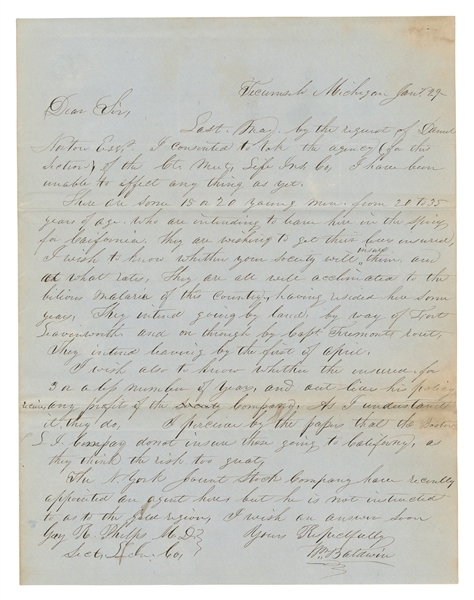 Tecumseh Michigan Jan.y 29
Dear Sir,
Last May, by the request of Daniel
Norton Esq.r I consented to take the agency (for this
section) of the Ct. Mut. Life Ins Co, I have been
unable to effect any thing as yet.
There are some 15 or 20 young men from 20 to 35
years of age who are intending to leave here in the spring
for California. they are wishing to get their lives insured,
I wish to know whether your Society will insure them and
at what rates, They are all well acclimated to the
bilious Malaria of this Country, having resided here some
years, They intend going by land, by way of Fort
Leavenworth and on through by Capt Fremonts rout,
They intend leaving by the first of April.
I wish also to know whether the insured for
2 or a less number of years, and out lives his policy
receives any profit of the Society Company, As I understand
it, they do, I perceive by the papers that the Boston
L I. Company do not insure those going to California, as
they think the risk too great,
The N. York Jount Stock Company have recently
appointed an agent here but he is not instructed
to as to the gold region, I wish an answer soon
Guy R. Phelps M.D. Yours Respectfully
Sec. Co, Wm Baldwin